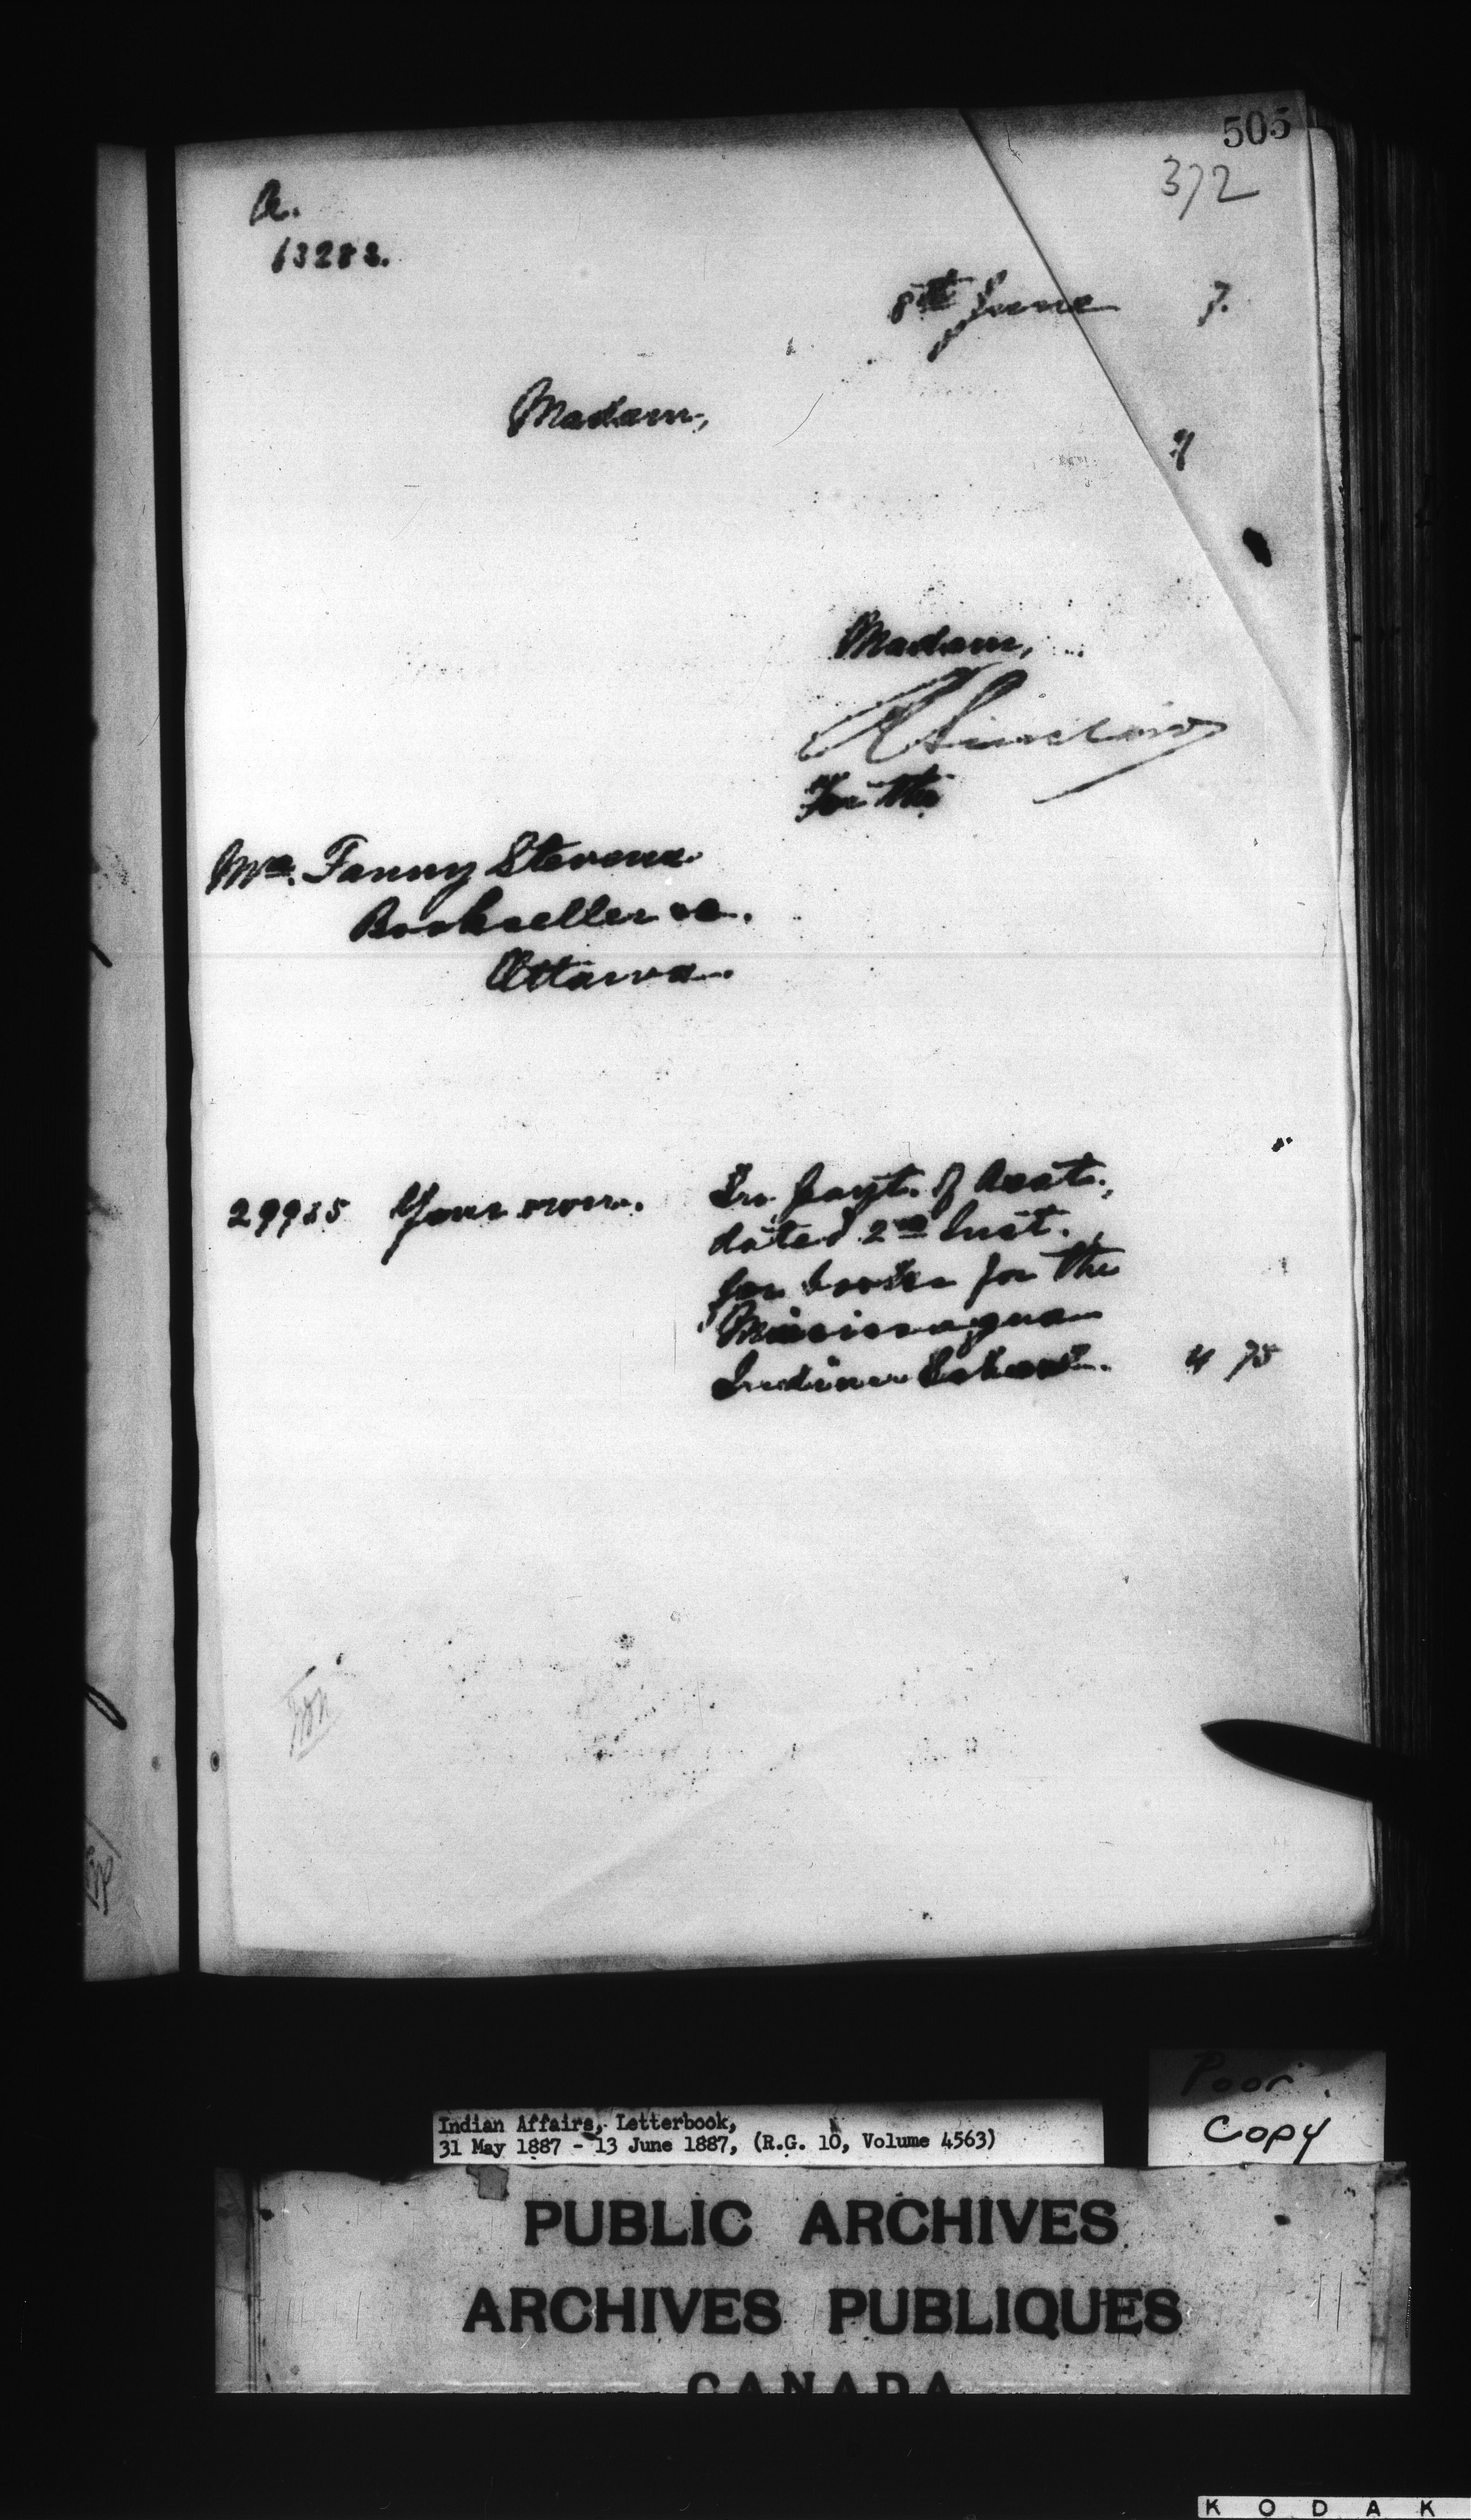 505
372
A.
63282.
8th June 7.
Madam,
Madam,
R Sinclair
For the
Mrs. Fanny Stevens.
Bookseller &c.
Ottawa.
29935 Your own. In payt. of Acct.,
dated 2nd Inst.,
for books for the
Mississagua
Indian School. 4 75
Poor
Copy
Indian Affairs, Letterbook,
31 May 1887 - 13 June 1887, (R.G. 10, Volume 4563)
PUBLIC ARCHIVES
ARCHIVES PUBLIQUES
CANADA
KODAK